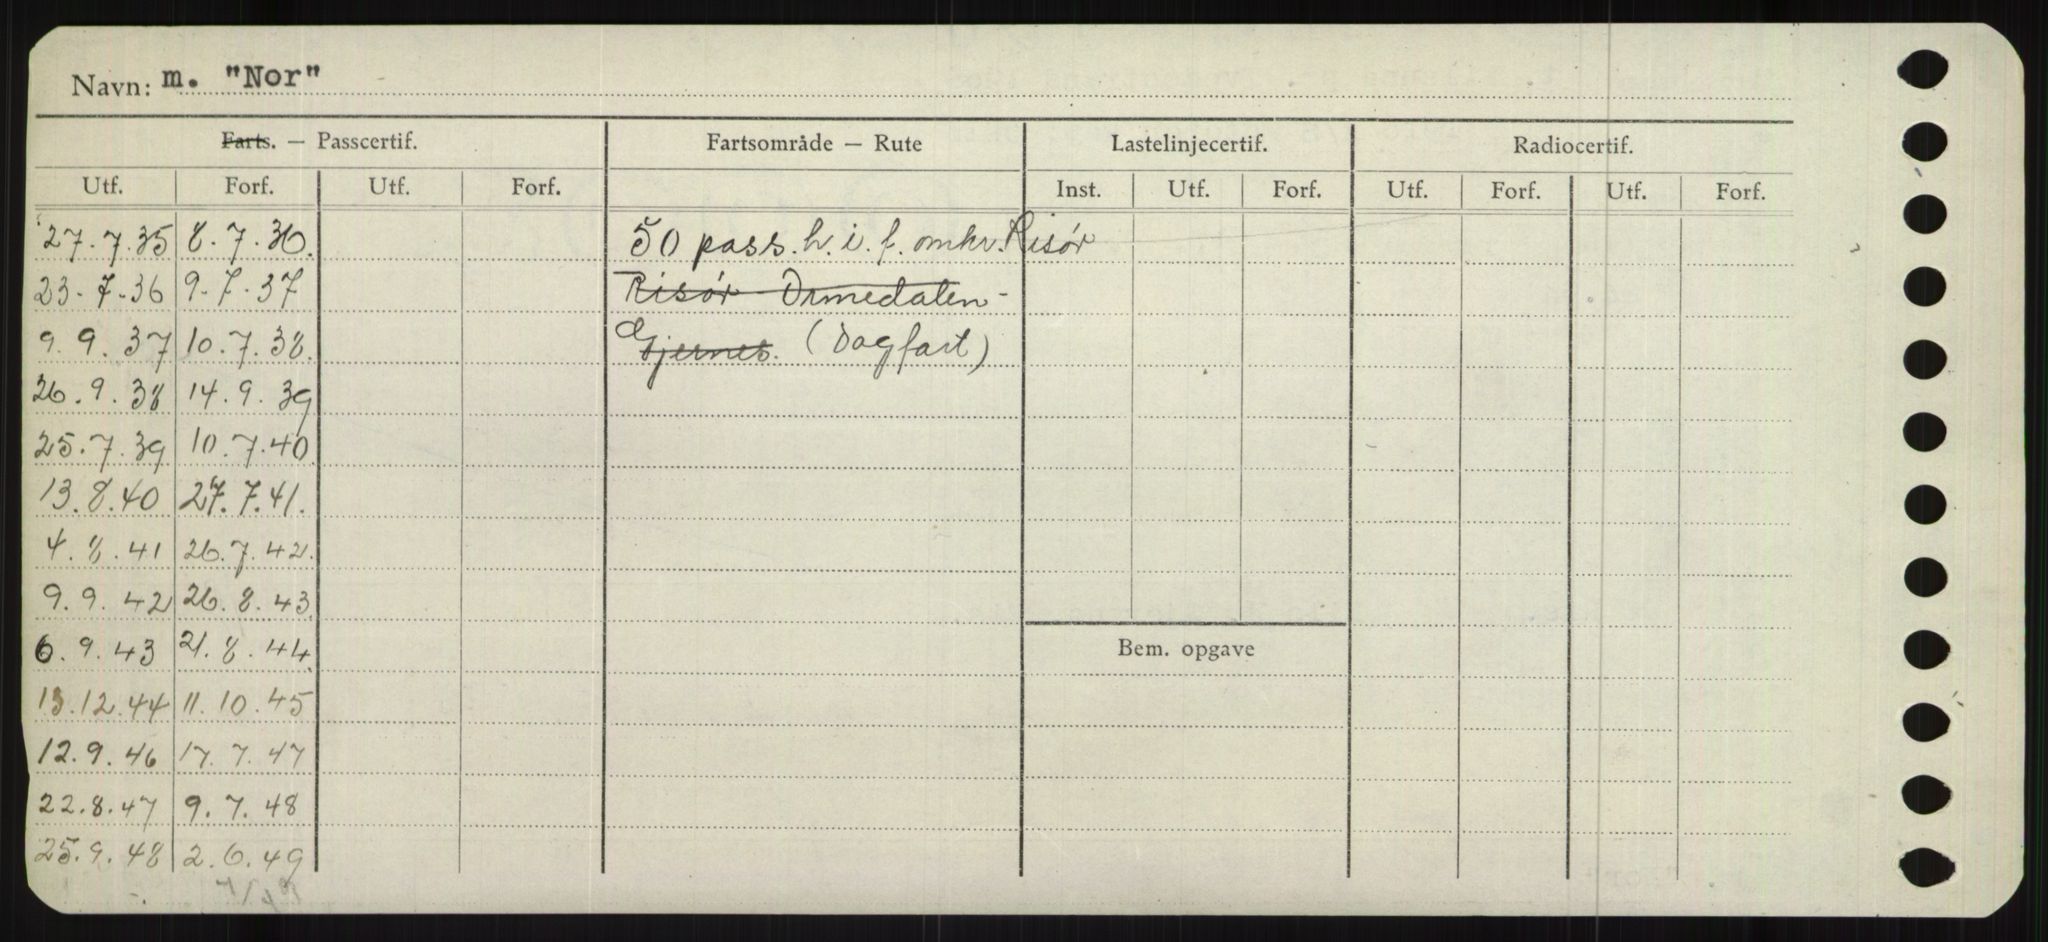 Navn: m. "Nor"
Farts. — Passcertif. Fartsområde — Rute Lastelinjecertif. Radiocertif.
Utf. Forf. Utf. Forf. Inst. Utf. Forf. Utf. Forf. Utf. Forf.
27.7.35 8.7.36. 50 pass. h. i. f. omkr. Risör
23.7.36 9.7.37 Risör Ormedalen -
9.9.37 10.7.38. Gjernes. (Dagfart)
26.9.38 14.9.39
25.7.39 10.7.40
13.8.40 27.7.41.
4.8.41 26.7.42.
9.9.42 26.8.43
6.9.43 21.8.44.
Bem. opgave
13.12.44 11.10.45
12.9.46 17.7.47
22.8.47 9.7.48
25.9.48 2.6.49